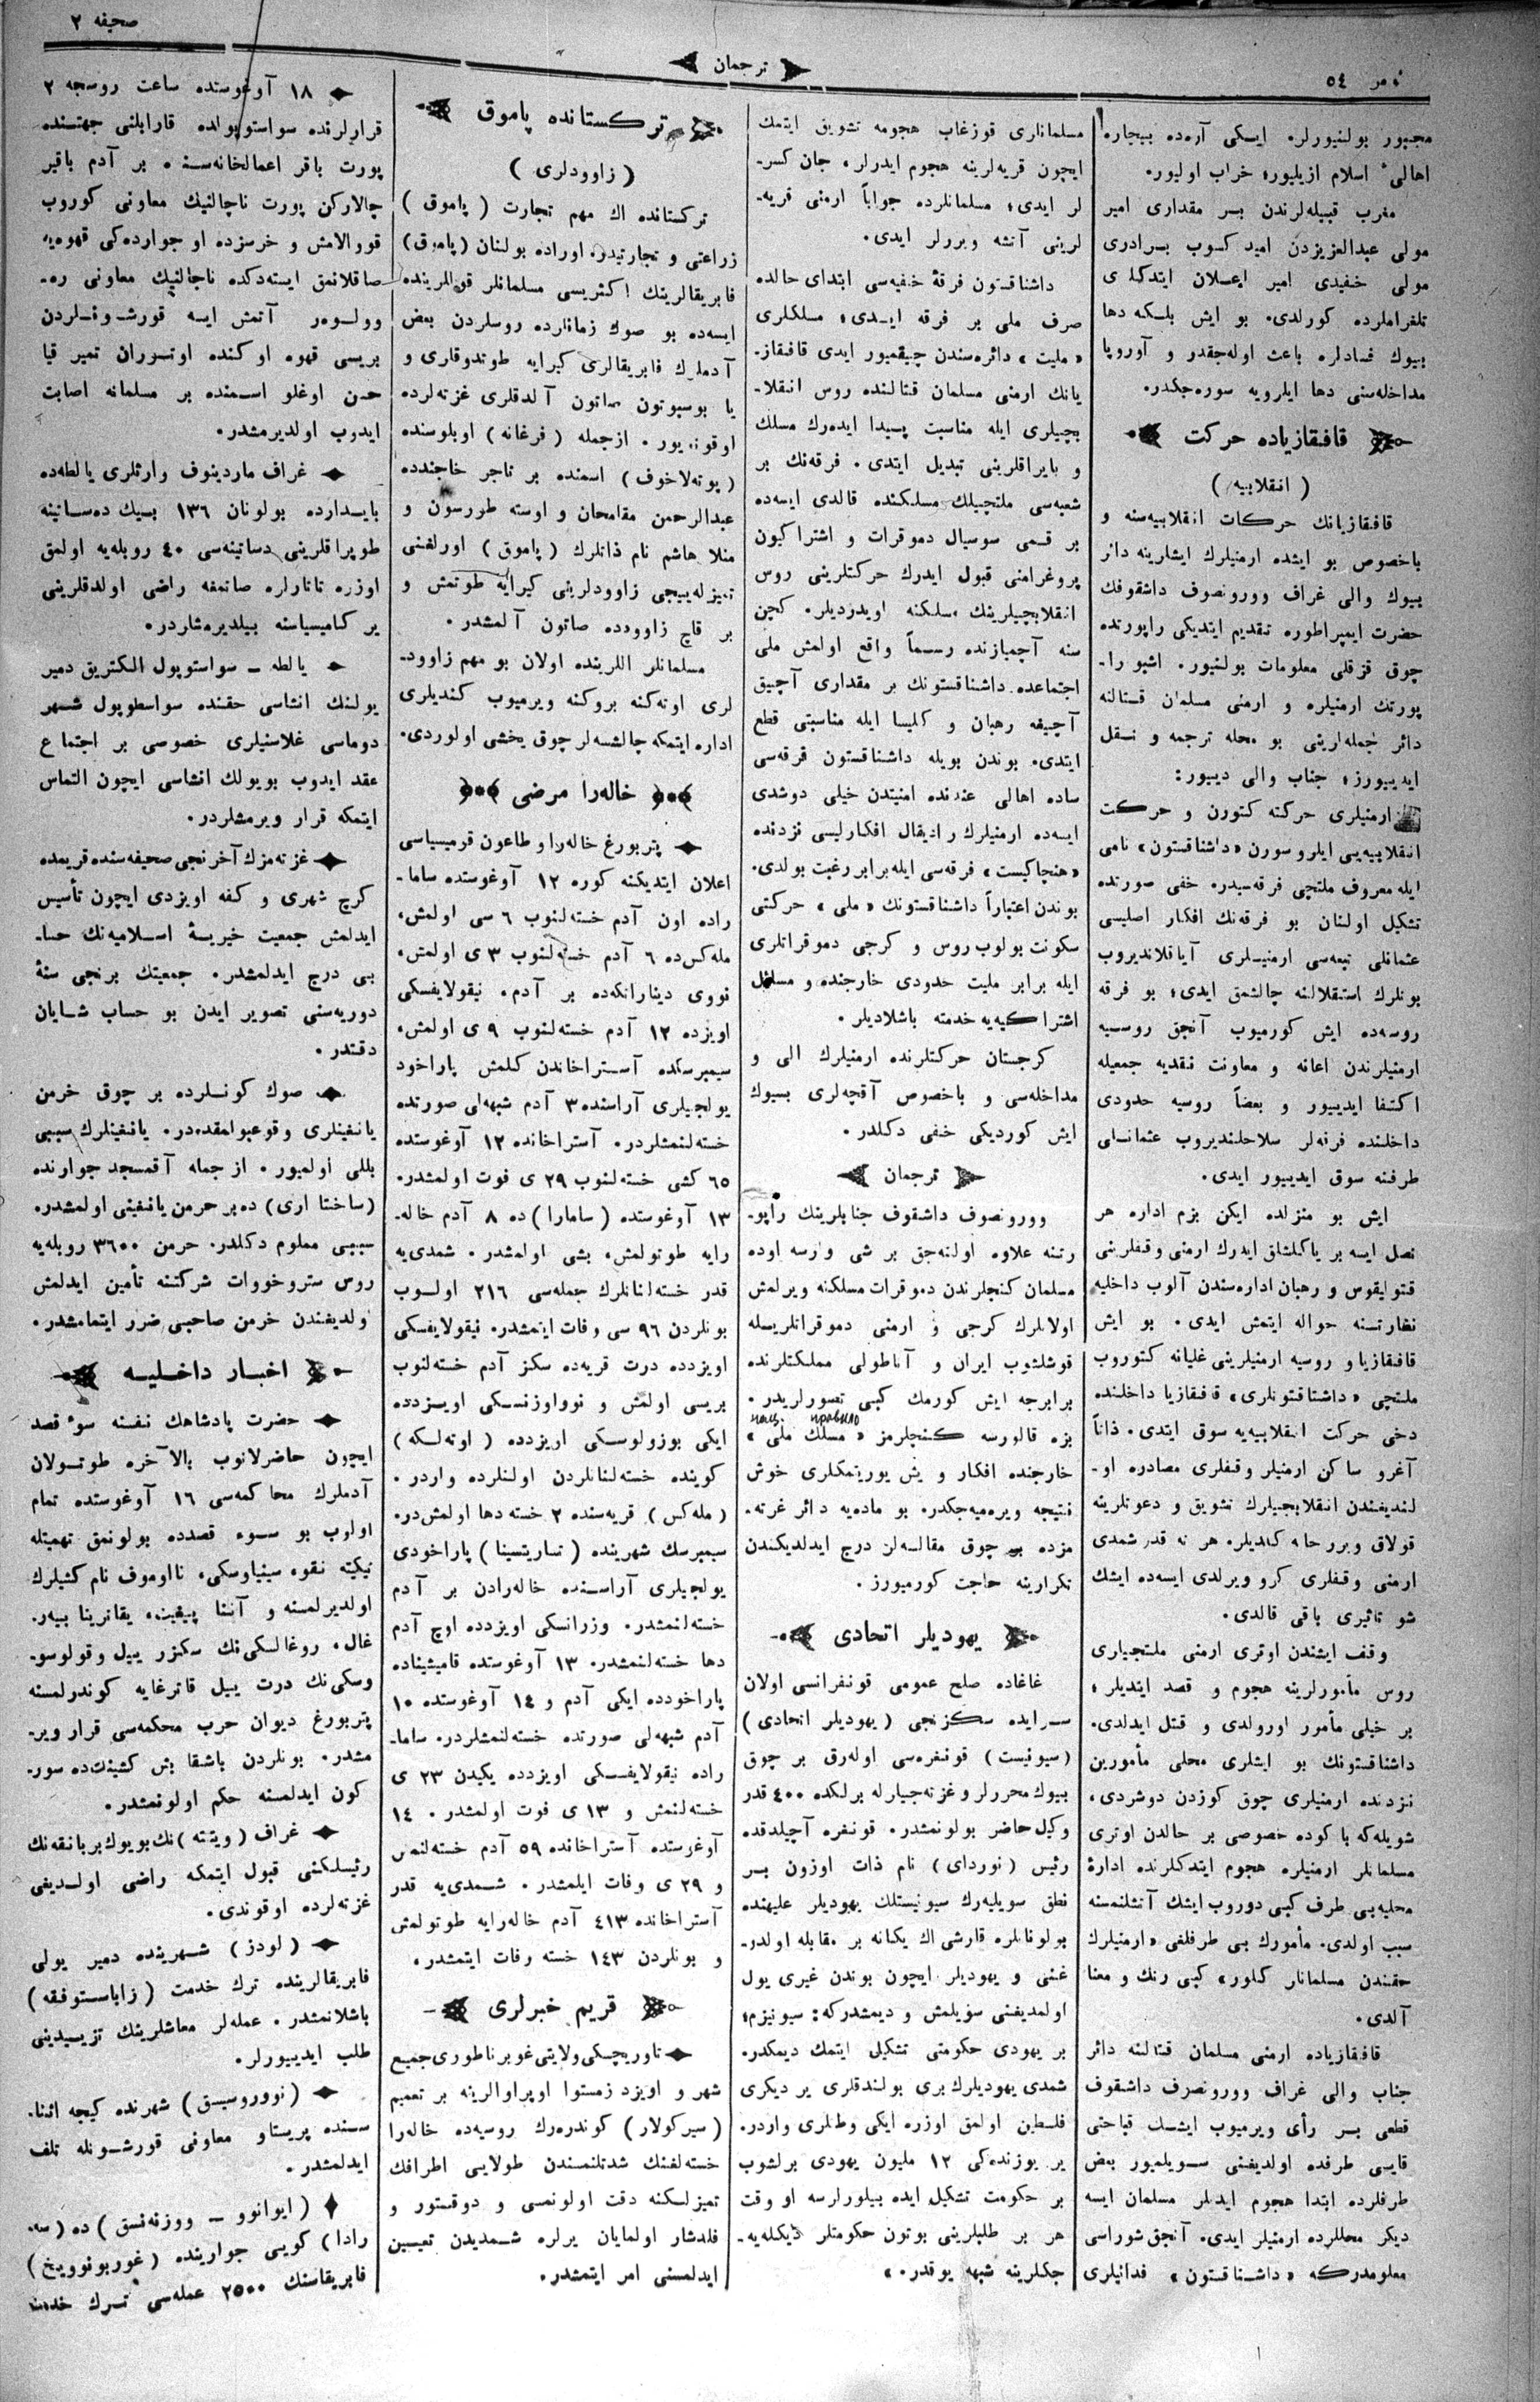 صحيفه ٢
ترجمان
نمر ٥٤
مجبور بولنيورلر. ايسكى آره‌ده بيچاره
اهالىء اسلام ازيليور؛ خراب اوليور.
مغرب قبيله‌لرندن بر مقدارى امير
مولى عبدالعزيزدن اميد كسوب برادرى
مولى حفيدى امير اعلان ايتدكلرى
تلغراملرده كورلدى. بو ايش بلكه دها
بيوك فسادلره باعث اوله‌جقدر و آوروپا
مداخله‌سنى دها ايلرويه سوره‌جكدر.
قافقازياده حركت
(انقلابيه)
قافقازيانك حركات انقلابيه‌سنه و
باخصوص بو ايشده ارمنيلرك ايشلرينه دائر
بيوك والى غراف وورونصوف داشقوفك
حضرت ايمپراطوره تقديم ايتديكى راپورنده
چوق قزقلى معلومات بولنيور. اشبو را-
پورتك ارمنيلره و ارمنى مسلمان قتالنه
دائر جمله‌لرينى بو محله ترجمه و نقل
ايدييورز؛ جناب والى دييور:
ارمنيلرى حركته كتورن و حركت
انقلابيه‌يى ايلرو سورن «داشناقستون» نامى
ايله معروف ملتچى فرقه‌سيدر. خفى صورتده
تشكيل اولنان بو فرقه‌نك افكار اصليسى
عثمانلى تبعه‌سى ارمنيلرى آياقلانديروب
بونلرك استقلالنه چالشمق ايدى؛ بو فرقه
روسيه‌ده ايش كورميوب آنجق روسيه
ارمنيلرندن اعانه و معاونت نقديه جمعيله
اكتفا ايدييور و بعضاً روسيه حدودى
داخلنده فرقه‌لر سلاحلنديروب عثمانلى
طرفنه سوق ايدييور ايدى.
ايش بو منزلده ايكن بزم اداره هر
نصل ايسه بر ياكلشلق ايدرك ارمنى وقفلرينى
قتوليقوس و رهبان اداره‌سندن آلوب داخليه
نظارتنه حواله ايتمش ايدى. بو ايش
قافقازيا و روسيه ارمنيلرينى غليانه كتوروب
ملتچى «داشناقتونلرى» قافقازيا داخلنده
دخى حركت انقلابيه‌يه سوق ايتدى. ذاتاً
آغرو ساكن ارمنيلر وقفلرى مصادره او-
لنديغندن انقلابجيلرك تشويق و دعوتلرينه
قولاق ويرر حاله كلديلر. هر نه قدر شمدى
ارمنى وقفلرى كرو ويرلدى ايسه‌ده ايشك
شو تاثيرى باقى قالدى.
وقف ايشندن اوترى ارمنى ملتجيلرى
روس مأمورلرينه هجوم و قصد ايتديلر؛
بر خيلى مأمور اورولدى و قتل ايدلدى.
داشناقستونك بو ايشلرى محلى مأمورين
نزدنده ارمنيلرى چوق كوزدن دوشردى،
شويله‌كه باكوده خصوصى بر حالدن اوترى
مسلمانلر ارمنيلره هجوم ايتدكلرنده ادارۀ
محليه‌يى طرف كبى دوروب ايشك آتشلنمسنه
سبب اولدى. مأمورك بى طرفلغى «ارمنيلرك
حقندن مسلمانلر كلور» كبى رنك و معنا
آلدى.
قافقازياده ارمنى مسلمان قتالنه دائر
جناب والى غراف وورونصرف داشقوف
قطعى بر رأى ويرميوب ايشك قباحتى
قايسى طرفده اولديغنى سويلميور بعض
طرفلرده ابتدا هجوم ايدنلر مسلمان ايسه
ديكر محللرده ارمنيلر ايدى. آنجق شوراسى
معلومدركه «داشناقستون» فدائيلرى
مسلمانلرى قوزغاب هجومه تشويق ايتمك
ايچون قريه‌لرينه هجوم ايدرلر، جان كسر-
لر ايدى؛ مسلمانلرده جواباً ارمنى قريه-
لرينى آتشه ويررلر ايدى.
داشناقستون فرقۀ خفيه‌سى ابتداى حالده
صرف ملى بر فرقه ايدى؛ مسلكلرى
«مليت» دائره‌سندن چيقميور ايدى قافقاز-
يانك ارمنى مسلمان قتالنده روس انقلا-
بچيلرى ايله مناسبت پيدا ايده‌رك مسلك
و بايراقلرينى تبديل ايتدى. فرقه‌نك بر
شعبه‌سى ملتچيلك مسلكنده قالدى ايسه‌ده
بر قسمى سوسيال دموقرات و اشتراكيون
پروغرامنى قبول ايدرك حركتلرينى روس
انقلابچيلرينك مسلكنه اويدرديلر. كچن
سنه آچميازنده رسماً واقع اولمش ملى
اجتماعده داشناقستونك بر مقدارى آچيق
آچيغه رهبان و كليسا ايله مناسبتى قطع
ايتدى. بوندن بويله داشناقستون فرقه‌سى
ساده اهالى عندنده امنيتدن خيلى دوشدى
ايسه‌ده ارمنيلرك راديقال افكارليسى نزدنده
«هنچاكيست» فرقه‌سى ايله برابر رغبت بولدى.
بوندن اعتباراً داشناقستونك «ملى» حركتى
سكونت بولوب روس و كرجى دموقراتلرى
ايله برابر مليت حدودى خارجنده و مسائل
اشتراكيه‌يه خدمته باشلاديلر.
كرجستان حركتلرنده ارمنيلرك الى و
مداخله‌سى و باخصوص آقچه‌لرى بيوك
ايش كورديكى خفى دكلدر.
ترجمان
وورونصوف داشقوف جنابلرينك راپو-
رتنه علاوه اولنه‌جق بر شى وارسه اوده
مسلمان كنجلرندن دموقرات مسلكنه ويرلمش
اولانلرك كرجى و ارمنى دموقراتلريله
قوشلشوب ايران و آناطولى مملكتلرنده
برابرجه ايش كورمك كبى تصورلريدر.
нац. правило
بزه قالورسه كنجلرمز «مسلك ملى»
خارجنده افكار و يش يوريتمكلرى خوش
نتيجه ويره‌ميه‌جكدر. بو ماده‌يه دائر غزته-
مزده بر چوق مقاله‌لر درج ايدلديكندن
تكرارينه حاجت كورميورز.
يهوديلر اتحادى
غاغاده صلح عمومى قونفرانسى اولان
سرايده سكزنجى (يهوديلر اتحادى)
(سيونيست) قونفره‌سى اوله‌رق بر چوق
بيوك محررلر و غزته‌جيلرله برلكده ٤٠٠ قدر
وكيل حاضر بولونمشدر. قونفره آچيلدقده
رئيس (نورداى) نام ذات اوزون بر
نطق سويليه‌رك سيونيستلك يهوديلر عليهنده
بولونانلره قارشى اك يكانه بر مقابله اولد-
غنى و يهوديلر ايچون بوندن غيرى يول
اولمديغنى سويلمش و ديمشدركه: سيونيزم؛
بر يهودى حكومتى تشكيلى ايتمك ديمكدر.
شمدى يهوديلرك برى بولندقلرى ير ديكرى
فلسطين اولمق اوزره ايكى وطنلرى واردر.
ير يوزنده‌كى ١٢ مليون يهودى برلشوب
بر حكومت تشكيل ايده بيلورلرسه او وقت
هر بر طلبلرينى بوتون حكومتلر ديكله‌يه-
جكلرينه شبهه يوقدر. »
تركستانده پاموق
(زاوودلرى)
تركستانده اك مهم تجارت (پاموق)
زراعتى و تجارتيدر. اوراده بولنان (پاموق)
فابريقالرينك اكثريسى مسلمانلر قوللرينده
ايسه‌ده بو صوك زمانلرده روسلردن بعض
آدملرك فابريقالرى كيرايه طوتدوقلرى و
يا بوسبوتون صاتون آلدقلرى غزته‌لرده
اوقونيور. ازجمله (فرغانه) اوبلوسنده
(پوته‌لاخوف) اسمنده بر تاجر خاجندده
عبدالرحمن مقامحان و اوسته طورسون و
منلا هاشم نام ذاتلرك (پاموق) اورلغنى
تميزله‌ييجى زاوودلرينى كيرايه طوتمش و
بر قاچ زاوودده صاتون آلمشدر.
مسلمانلر اللرينده اولان بو مهم زاوود-
لرى اوته‌كنه بروكنه ويرميوب كنديلرى
اداره ايتمكه چالشسه‌لر چوق يخشى اولوردى.
خاله‌را مرضى
پتربورغ خاله‌را و طاعون قوميسياسى
اعلان ايتديكنه كوره ١٢ آوغوستده ساما-
راده اون آدم خسته‌لنوب ٦ سى اولمش،
مله‌كس‌ده ٦ آدم خسته‌لنوب ٣ى اولمش،
نووى دينارانكه‌ده بر آدم، نيقولايفسكى
اويزده ١٢ آدم خسته‌لنوب ٩ى اولمش،
سيمبرسكده آستراخاندن كلمش پاراخود
يولجيلرى آراسنده ٣ آدم شبهه‌لى صورتده
خسته‌لنمشلردر. آستراخانده ١٢ آوغوستده
٦٥ كشى خسته‌لنوب ٢٩ى فوت اولمشدر.
١٣ آوغوستده (سامارا) ده ٨ آدم خاله-
رايه طوتولمش، بشى اولمشدر. شمدى‌يه
قدر خسته‌لنانلرك جمله‌سى ٢١٦ اولوب
بونلردن ٩٦ سى وفات ايتمشدر. نيقولايفسكى
اويزدده درت قريه‌ده سكز آدم خسته‌لنوب
بريسى اولمش و نوواوزنسكى اويزدده
ايكى بوزولوسكى اويزدده (اوته‌لكه)
كوينده خسته‌لنانلردن اولنلرده واردر.
(مله‌كس) قريه‌سنده ٢ خسته دها اولمش‌در.
سيمبرسك شهرينده (تساريتسينا) پاراخودى
يولجيلرى آراسنده خاله‌رادن بر آدم
خسته‌لنمشدر. وزرانسكى اويزدده اوچ آدم
دها خسته‌لنمشدر. ١٣ آوغوستده قاميشيناده
پاراخودده ايكى آدم و ١٤ آوغوستده ١٠
آدم شبهه‌لى صورتده خسته‌لنمشلردر. ساما-
راده نيقولايفسكى اويزدده يكيدن ٢٣ ى
خسته‌لنمش و ١٣ى فوت اولمشدر. ١٤
آوغوستده آستراخانده ٥٩ آدم خسته‌لنمش
و ٢٩ى وفات ايلمشدر. شمدى‌يه قدر
آستراخانده ٤١٣ آدم خاله‌رايه طوتولمش
و بونلردن ١٤٣ خسته وفات ايتمشدر.
قريم خبرلرى
تاوريچسكى ولايتى غوبرناطورى جميع
شهر و اويزد زمستوا اوپراوالرينه بر تعميم
(سيركولار) كوندره‌رك روسيه‌ده خاله‌را
خسته‌لغنك شدتلنمسندن طولايى اطرافك
تميزلكنه دقت اولونمسى و دوقتور و
فلدشار اولمايان يرلره شمديدن تعيين
ايدلمسنى امر ايتمشدر.
١٨ آوغوستده ساعت روسجه ٢
قرارلرنده سواستوپولده قارابلنى جهتنده
پورت باقر اعمالخانه‌سنده بر آدم باقير
چالاركن پورت ناچالنيك معاونى كوروب
قووالامش و خرسزده او جوارده‌كى قهوه‌يه
صاقلانمق ايسته‌دكده ناچالنيك معاونى ره-
وولوه‌ر آتمش ايسه قورشونلردن
بريسى قهوه اوكنده اوتوران تمير قيا
حسن اوغلو اسمنده بر مسلمانه اصابت
ايدوب اولديرمشدر.
غراف ماردينوف وارثلرى يالطه‌ده
بايدارده بولونان ١٣٦ بيك ده‌ساتينه
طوپراقلرينى دساتينه‌سى ٤٠ روبله‌يه اولمق
اوزره تاتارلره صاتمغه راضى اولدقلرينى
ير كاميسياسنه بيلديرمشلردر.
يالطه - سواستوپول الكتريق دمير
يولنك انشاسى حقنده سواسطوپول شهر
دوماسى غلاسنيلرى خصوصى بر اجتماع
عقد ايدوب بويولك انشاسى ايچون التماس
ايتمكه قرار ويرمشلردر.
غزته‌مزك آخرنجى صحيفه‌سنده قريمده
كرچ شهرى و كفه اويزدى ايچون تأسيس
ايدلمش جمعيت خيريۀ اسلاميه‌نك حسا-
بى درج ايدلمشدر. جمعيتك برنجى سنۀ
دوريه‌سنى تصوير ايدن بو حساب شايان
دقتدر.
صوك كونلرده بر چوق خرمن
يانغينلرى وقوعبولمقده‌در. يانغينلرك سببى
بللى اولميور. از جمله آقمسجد جوارنده
(ساختا ارى) ده بر خرمن يانغينى اولمشدر.
سببى معلوم دكلدر. خرمن ٣٦٠٠ روبله‌يه
روس ستروخووات شركتنه تأمين ايدلمش
ولديغندن خرمن صاحبى ضرر ايتمامشدر.
اخبار داخليه
حضرت پادشاهك نفسنه سوء قصد
ايچون حاضرلانوب بالآخره طوتولان
آدملرك محاكمه‌سى ١٦ آوغوستده تمام
اولوب بو سوء قصدده بولونمق تهمتيله
نيكيته نقوه سينياوسكى، نااوموف نام كشيلرك
اولديرلمسنه و آننا پيغيت، يقاترينا بيه‌ر.
غال، روغالسكى‌نك سكزر ييل و قولوسو-
وسكى‌نك درت ييل قاترغايه كوندرلمسنه
پتربورغ ديوان حرب محكمه‌سى قرار وير-
مشدر. بونلردن باشقا بش كشينك‌ده سور-
كون ايدلمسنه حكم اولونمشدر.
غراف (ويتته)نك بويوك بر بانقه‌نك
رئيسلكنى قبول ايتمكه راضى اولديغى
غزته‌لرده اوقوندى.
(لودز) شهرينده دمير يولى
فابريقالرينده ترك خدمت (زاباستوفقه)
باشلانمشدر. عمله‌لر معاشلرينك تزييدينى
طلب ايدييورلر.
(نووروسيسق) شهرنده كيجه اثنا-
سنده پريستاو معاونى قورشونله تلف
ايدلمشدر.
(ايوانوو - ووزنه‌نسق) ده (سه.
رادا) كويى جوارينده (غوربونوويخ)
فابريقاسنك ٢٥٠٠ عمله‌سى ترك خدمت